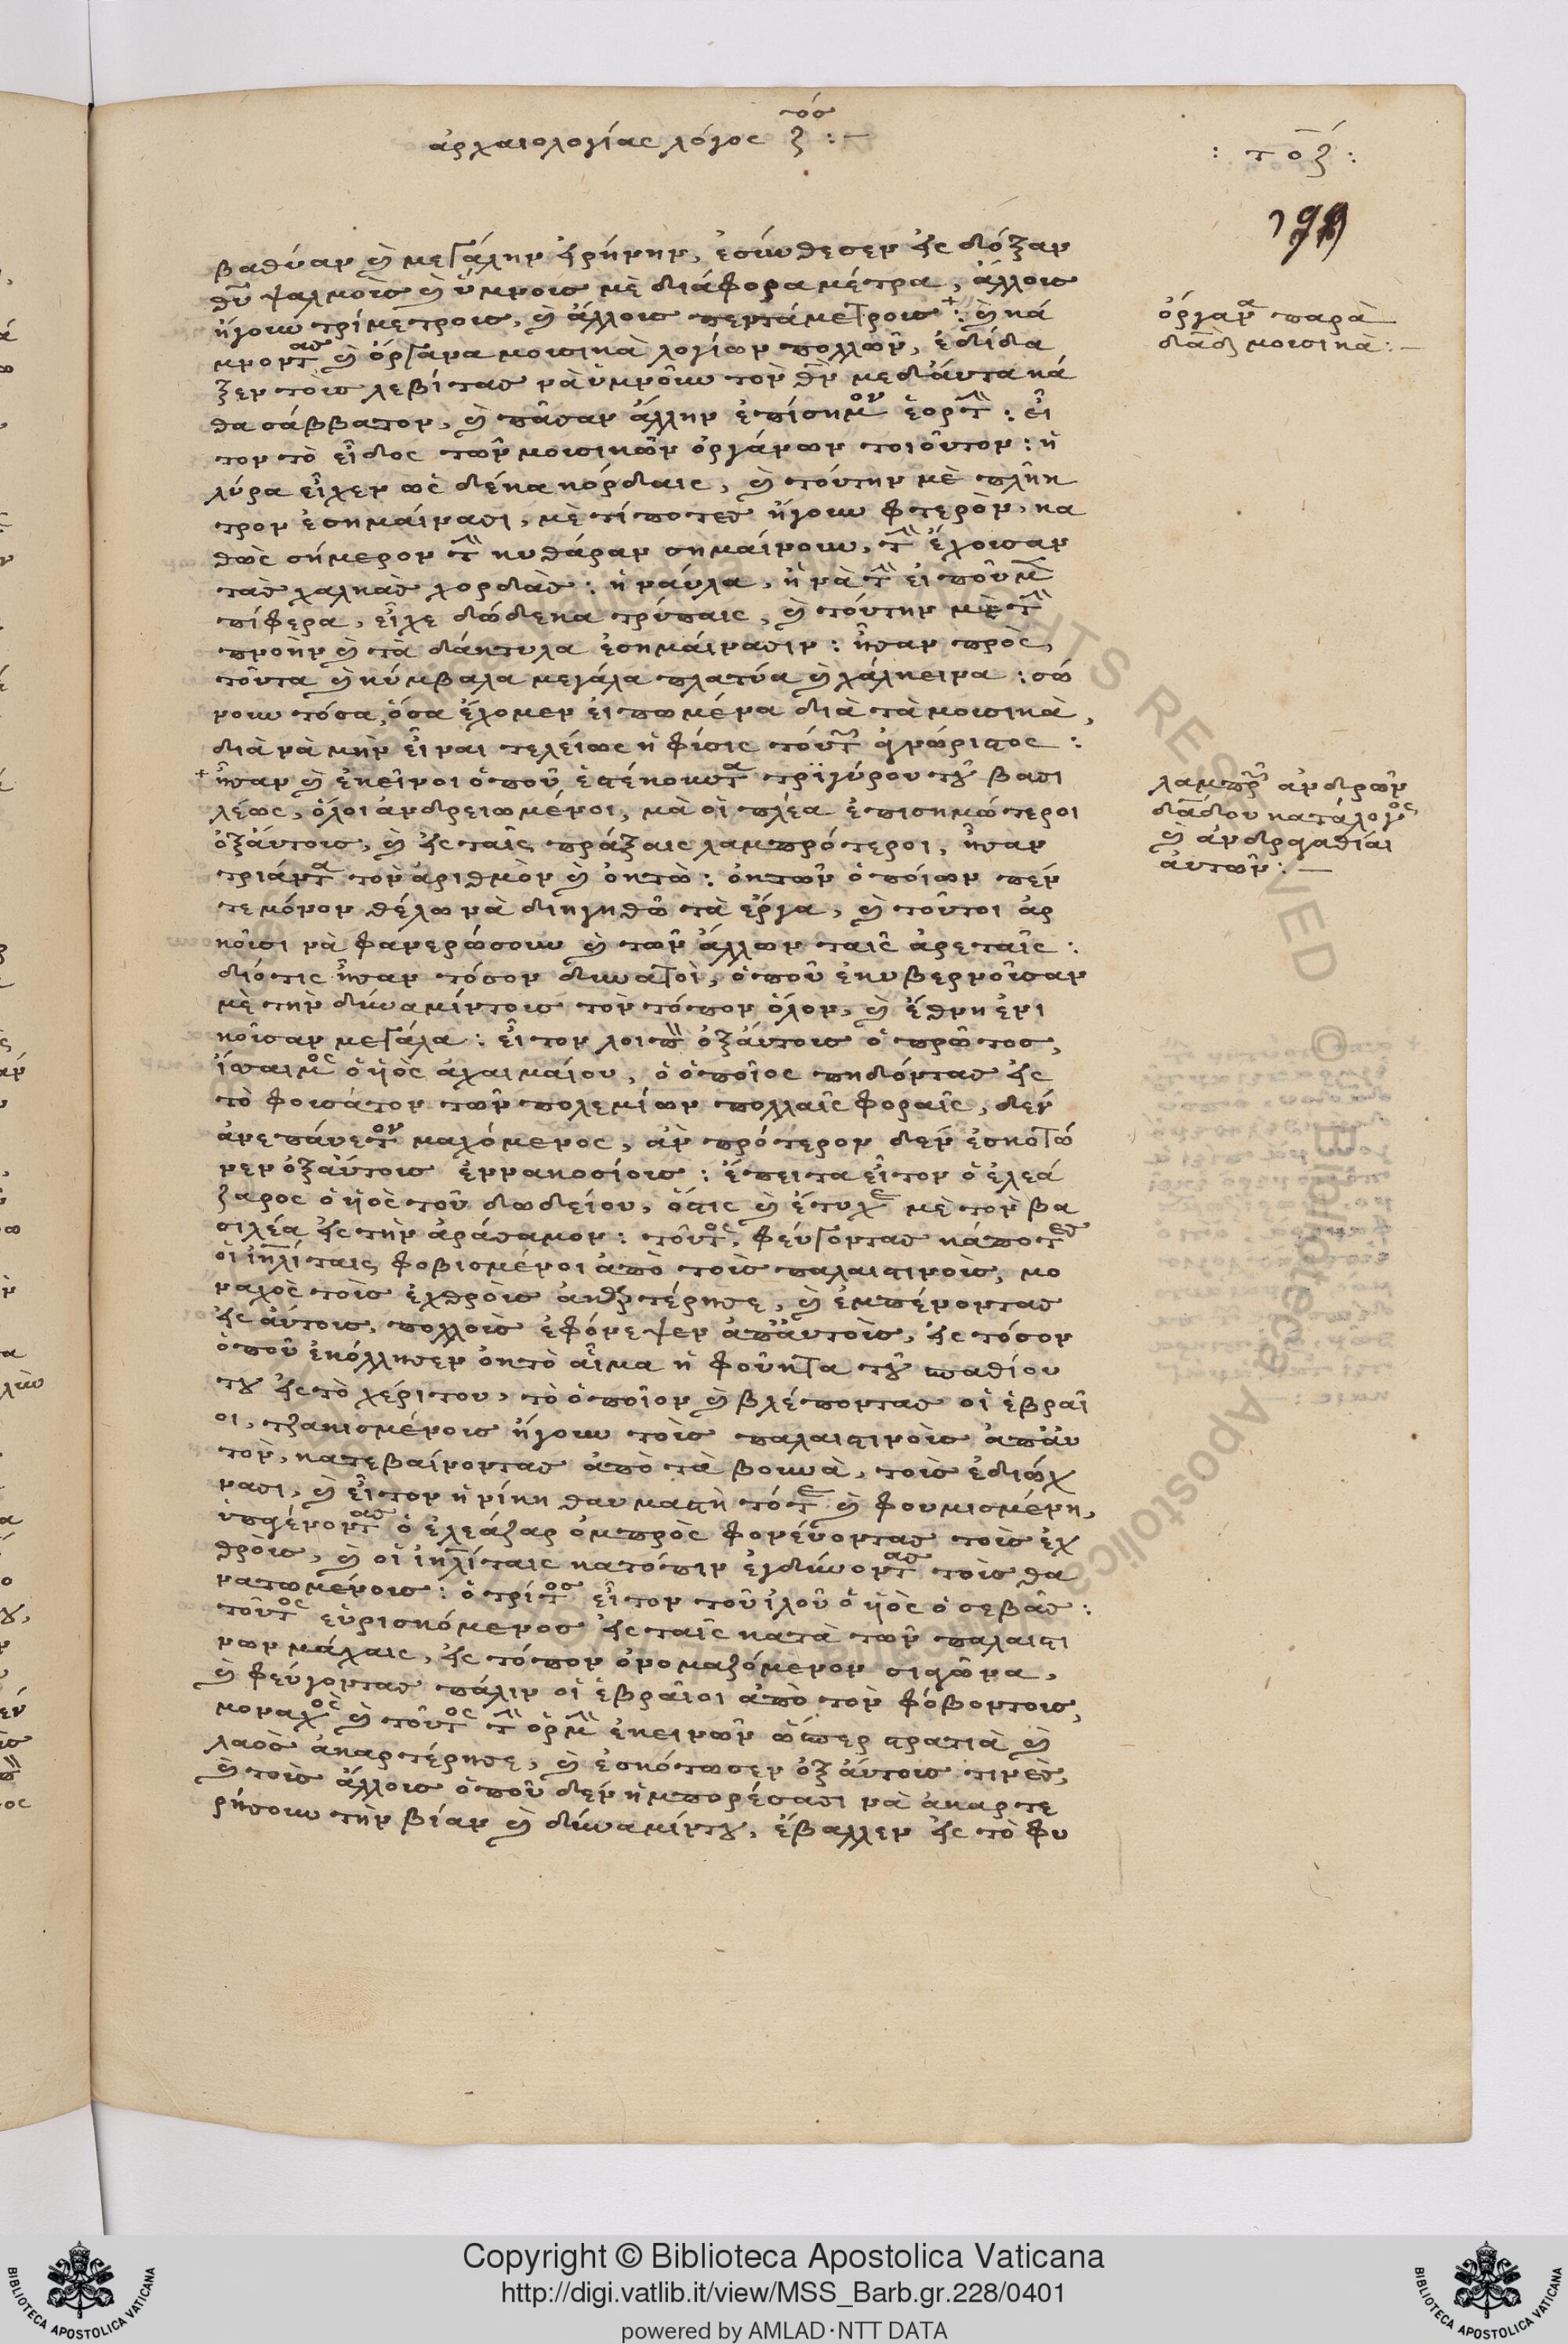 ἀρχαιολογίας λόγος ζ τὸσ : —
: τοζ :
199
βαθύαν ϗ μεγάλην εἰρήνην, ἐσύνθεσεν εἰς δόξαν
θῦ ψαλμοὺσ ϗ ὕμνουσ μὲ διάφορα μέτρα, ἄλλουσ
ἤγουν τρίμετρουσ, ϗ ἄλλουσ πεντάμετρουσ + : ϗ κά
μνοντασ ϗ ὄργανα μουσικὰ λογίων πολλῶν, ἐδίδα
ξεν τοὺσ λεβίτασ νὰ ὑμνοῦν τὸν θν μεδαύτα κά
θα σάββατον, ϗ πᾶσαν ἄλλην ἐπίσημον ἑορτὴν : εἶ
τον τὸ εἶδος τῶν μουσικῶν ὀργάνων τοιοῦτον : ἡ
λύρα εἶχεν ὡς δέκα κόρδαις, ϗ τούτην μὲ πλῆκ
τρον ἐσημαίνασι, μὲ τίποτεσ ἤγουν φτερὸν, κα
θὼς σήμερον τὴν κυθάραν σημαίνουν, τὴν ἔχουσαν
τὰσ χαλκὰσ χορδὰσ : ἡ ναύλα, ἢ νὰ τὴν εἰποῦμεν
πίφερα, εἶχε δώδεκα τρύπαις, ϗ τούτην μὲ τὴν
πνοὴν ϗ τὰ δάκτυλα ἐσημαίνασιν : ἦσαν πρὸς
τοῦτα ϗ κύμβαλα μεγάλα πλατύα ϗ χάλκεινα : σώ
νουν τόσα ὅσα ἔχομεν εἰπωμένα διὰ τὰ μουσικὰ,
διὰ νὰ μὴν εἶναι τελείως ἡ φύσις τούτων ἀγνώριστος :
+ ἦσαν ϗ ἐκεῖνοι ὁποῦ ἐστέκουντα τρϊγύρου τοῦ βασι
λέως, ὅλοι ἀνδρειωμένοι, μὰ οἱ πλέα ἐπισημώτεροι
ὀξαύτουσ, ϗ εἰς ταῖς πράξαις λαμπρότεροι, ἦσαν
τριάντα τὸν ἀριθμὸν ϗ ὀκτὼ : ὀκτῶν ὁποίων πέν
τε μόνον θέλω νὰ διηγηθῶ τὰ ἔργα, ϗ τοῦτοι ἀρ
κοῦσι νὰ φανερώσουν ϗ τῶν ἄλλων ταῖς ἀρεταῖς :
διότις ἦσαν τόσον δυνατοὶ, ὁποῦ ἐκυβερνοῦσαν
μὲ τὴν δύναμίντουσ τὸν τόπον ὅλον, ϗ ἔθνη ἐνι
κοῦσαν μεγάλα : εἶτον λοιπὸν ὀξαύτουσ ὁ πρῶτοσ,
ἴσαιμος ὁ ϋἱὸς ἀχαιμαίου, ὁ ὁποῖος πηδόντασ εἰς
τὸ φουσάτον τῶν πολεμίων πολλαῖς φοραῖς, δεν
ἀνεπαύετον μαχόμενος, ἀν πρότερον δεν ἐσκοτώ
νεν ὀξαύτουσ ἐννακοσίουσ : ἔπειτα εἶτον ὁ ἐλεά
ζαρος ὁ ϋἱὸς τοῦ δωδείου, ὅστις ϗ ἔτυχε μὲ τὸν βα
σιλέα εἰς τὴν ἀράσαμον : τοῦτος, φεύγοντασ κάποτεσ
οἱ ιηλίταις φοβισμένοι ἀπὸ τοὺσ παλαιστινοὺσ, μο
ναχὸς τοὺσ ἐχθροὺσ ἀκαρτέρησε, ϗ ἐμπένοντασ
εἰς αύτουσ, πολλοὺσ ἐφόνεψεν ἀπαυτοὺσ, εἰς τόσον
ὁποῦ ἐκόλλησεν ὀκτὸ αἷμα ἡ φούκτα τοῦ σπαθίου
του εἰς τὸ χέριτου, τὸ ὁποῖον ϗ βλέποντασ οἱ ἑβραῖ
οι, τζακισμένουσ ἤγουν τοὺσ παλαιστινοὺσ ἀπαυ
τὸν, κατεβαίνοντασ ἀπὸ τὰ βουνὰ, τοὺσ ἐδιώχ
νασι, ϗ εἶτον ἡ νίκη θαυμαστὴ τότε ϗ φουμισμένη,
ὑπαγένοντασ ὁ ἐλεάζαρ ὀμπρὸς φονεύοντασ τοὺσ ἐχ
θροὺσ, ϗ οἱ ιηλίταις κατόπιν ἐγδύνοντασ τοὺσ θα
νατωμένουσ : ὁ τρίτοσ εἶτον τοῦ ἰλοῦ ὁ ϋἱὸς ὁ σεβᾶσ :
τοῦτος εὑρισκόμενοσ εἰς ταῖς κατὰ τῶν παλαιστι
νων μάχαις, εἰς τόπον ὀνομαζόμενον σιαγῶνα,
ϗ φεύγοντασ πάλιν οἱ ἑβραῖοι ἀπὸ τὸν φόβοντουσ,
μοναχὸς ϗ τοῦτος τὴν ὁρμὴν ἐκεινῶν ὥσπερ στρατιὰ ϗ
λαὸσ ἀκαρτέρησε, ϗ ἐσκότωσεν ὀξαύτουσ τινὲσ,
ϗ τοὺσ ἄλλουσ ὁποῦ δεν ἡμπορέσασι νὰ ἀκαρτε
ρήσουν τὴν βίαν ϗ δύναμίντου, ἔβαλλεν εἰς τὸ φυ
ὄργανα παρὰ
δαδ μουσικὰ : —
λαμπρῶν ἀνδρῶν
δαδου κατάλογος
ϗ ἀνδραγαθίαι
ἀυτῶν : —
Copyright © Biblioteca Apostolica Vaticana
http://digi.vatlib.it/view/MSS_Barb.gr.228/0401
powered by AMLAD·NTT DATA